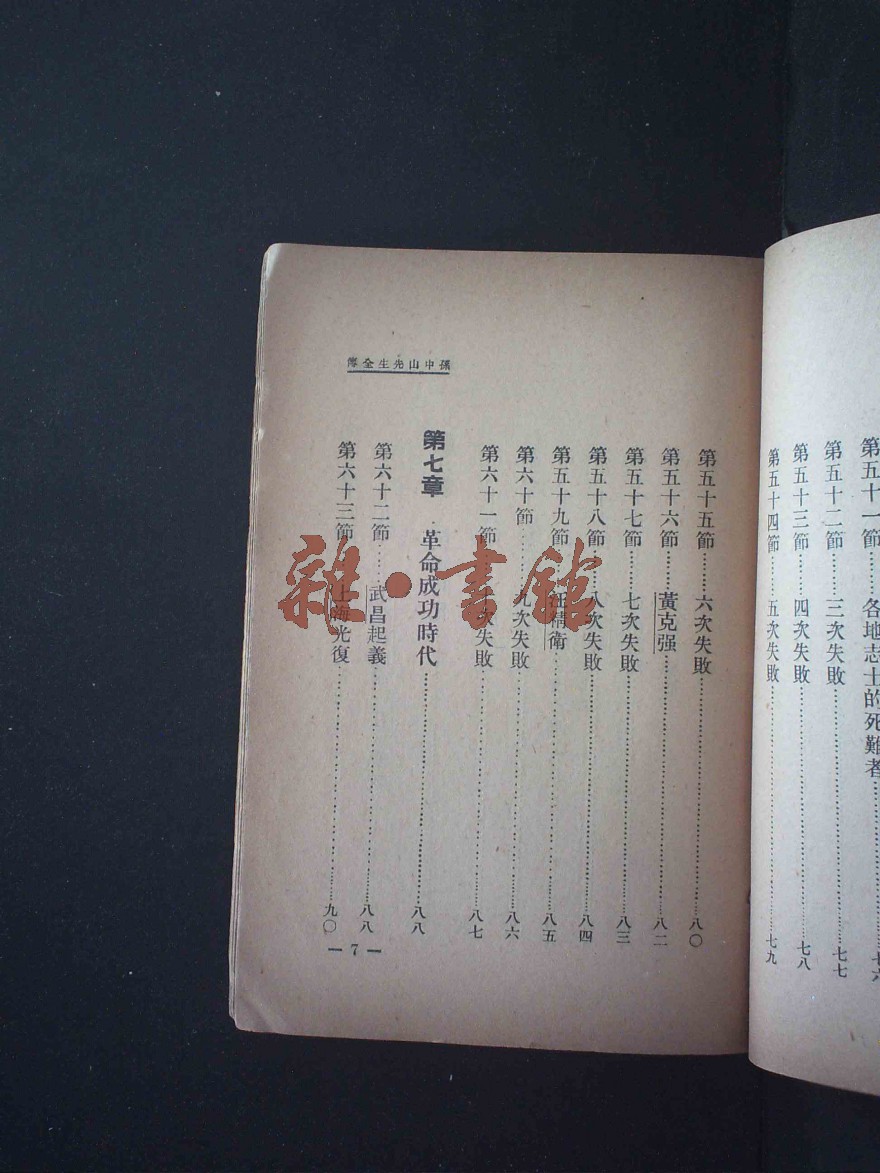 第五十一節……各地志士的死難者……七六
第五十二節……三次失敗……七七
第五十三節……四次失敗……七八
第五十四節……五次失敗……七九
孫中山先生全傳
第五十五節……六次失敗……八〇
第五十六節……黃克强……八二
第五十七節……七次失敗……八三
第五十八節……八次失敗……八四
第五十九節……汪精衛……八五
第六十節……九次失敗……八六
第六十一節……十次失敗……八七
第七章 革命成功時代……八八
第六十二節……武昌起義……八八
第六十三節……上海光復……九〇
— 7 —
雜·書館